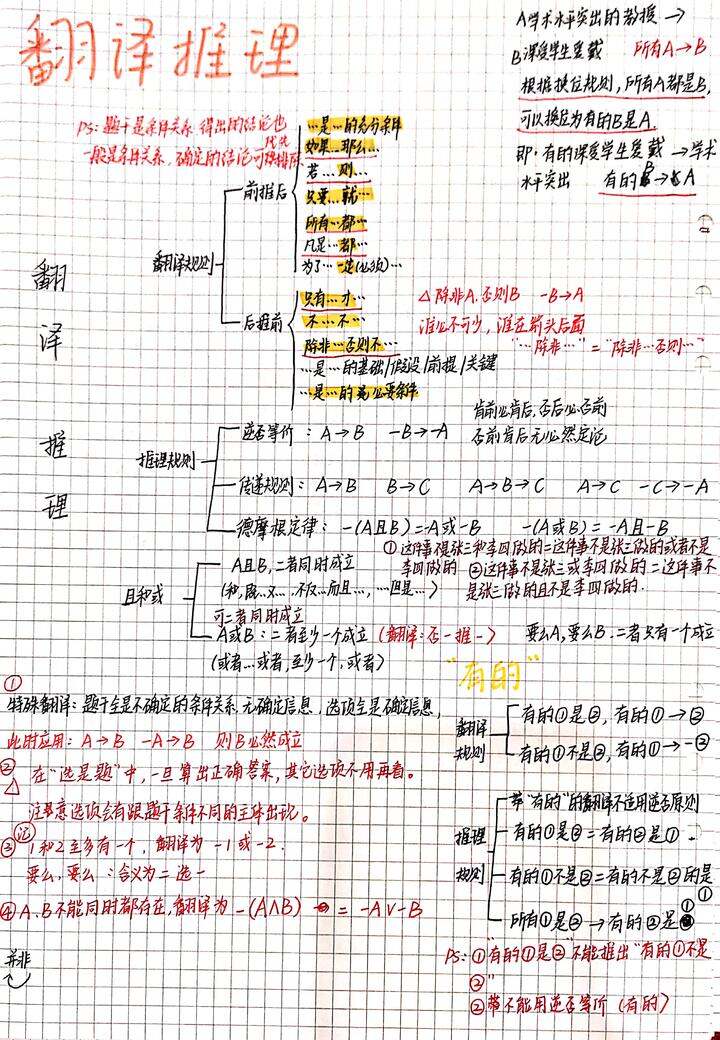 翻译推理
A学术水平突出的教授 →
B深受学生爱戴 所有A→B
根据换位规则,所有A都是B,
可以换位为有的B是A.
即:有的深受学生爱戴→学术
水平突出 有的B→A
PS:题干是条件关系,得出的结论也
一般是条件关系,确定的结论可优先排除
翻译推理
翻译规则
前推后
…是…的充分条件
如果…那么…
若…则…
只要…就…
所有…都…
凡是…都…
为了…一定(必须)…
后推前
只有…才…
不…不…
除非…否则不…
…是…的基础/假设/前提/关键
…是…的必要条件
△除非A,否则B -B→A
谁必不可少,谁在箭头后面
"…除非…"="除非…否则…"
推理规则
肯前必肯后,否后必否前
否前肯后无必然定论
逆否等价: A→B -B→-A
传递规则: A→B B→C A→B→C A→C -C→-A
德摩根定律: -(A且B)=-A或-B -(A或B)=-A且-B
①这件事不是张三和李四做的=这件事不是张三做的或者不是
李四做的 ②这件事不是张三或李四做的=这件事不
是张三做的且不是李四做的.
且和或
A且B,二者同时成立
(和,既…又…,不仅…而且…,…但是…)
可二者同时成立
A或B:二者至少一个成立(翻译:否一推一) 要么A,要么B.二者只有一个成立
(或者…或者,至少一个,或者)
"有的"
①
特殊翻译:题干全是不确定的条件关系,无确定信息,选项全是确定信息,
此时应用: A→B -A→B 则B必然成立
②
△ 在"选是题"中,一旦算出正确答案,其它选项不用再看。
注意选项会有跟题干条件不同的主体出现。
记
③1和2至多有一个,翻译为 -1或-2.
要么,要么:含义为二选一
④A、B不能同时都存在,翻译为-(A∧B) = -A∨-B
并非
翻译规则
有的①是②,有的①→②
有的①不是②,有的①→-②
推理规则
带"有的"的翻译不适用逆否原则
有的①是②=有的②是①.
有的①不是②=有的不是②的是①
所有①是②→有的②是①
PS:①"有的①是②"不能推出"有的①不是
②"
②带不能用逆否等价(有的)